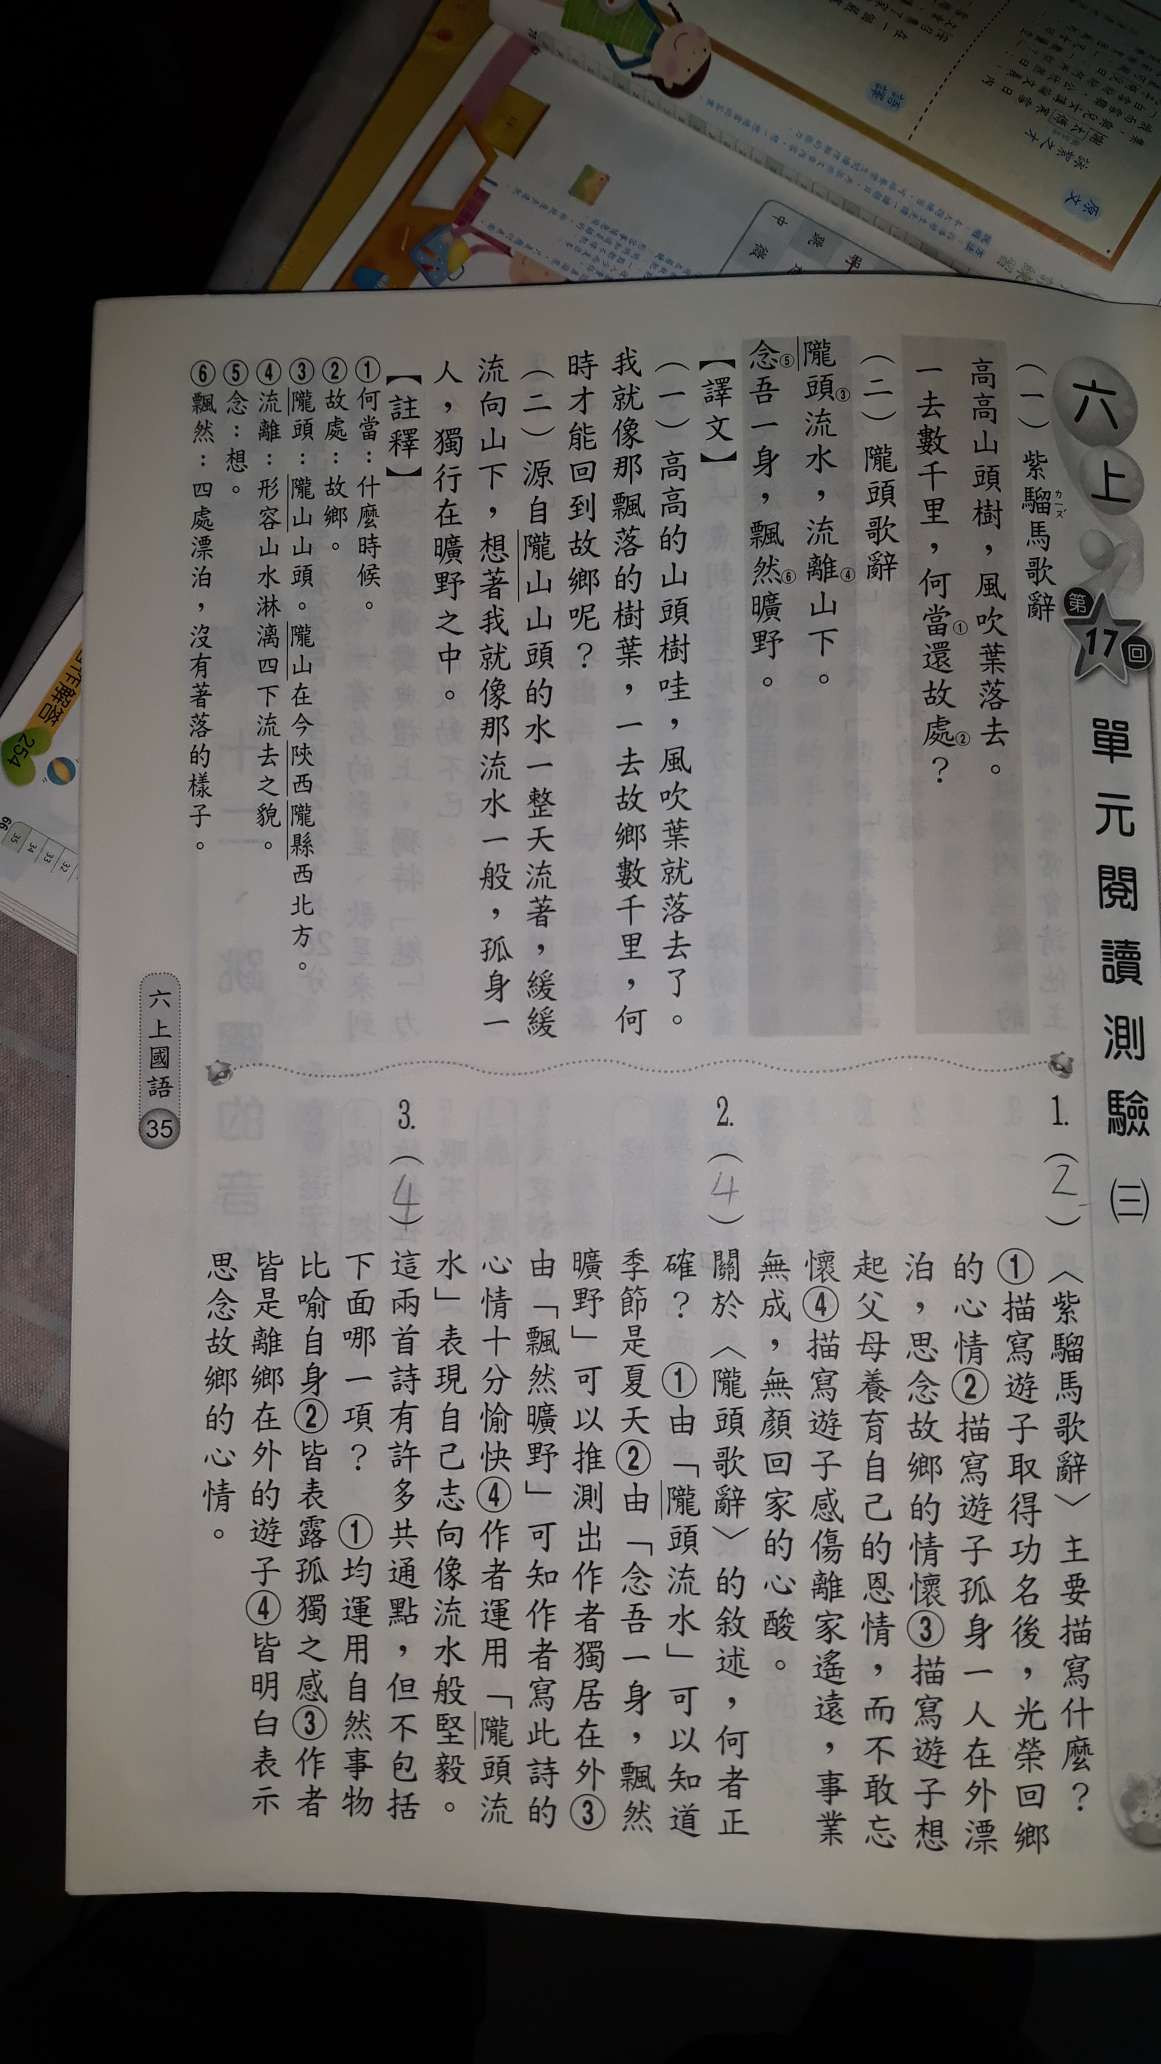 六上
第17回
單元閱讀測驗㈢
(一)紫騮馬歌辭
ㄌㄧㄡˊ
高高山頭樹，風吹葉落去。
一去數千里，何當①還故處②？
(二)隴頭歌辭
隴頭③流水，流離④山下。
念⑤吾一身，飄然⑥曠野。
【譯文】
(一)高高的山頭樹哇，風吹葉就落去了。
我就像那飄落的樹葉，一去故鄉數千里，何
時才能回到故鄉呢？
(二)源自隴山山頭的水一整天流著，緩緩
流向山下，想著我就像那流水一般，孤身一
人，獨行在曠野之中。
【註釋】
①何當：什麼時候。
②故處：故鄉。
③隴頭：隴山山頭。隴山在今陝西隴縣西北方。
④流離：形容山水淋漓四下流去之貌。
⑤念：想。
⑥飄然：四處漂泊，沒有著落的樣子。
1.(2)〈紫騮馬歌辭〉主要描寫什麼？
①描寫遊子取得功名後，光榮回鄉
的心情②描寫遊子孤身一人在外漂
泊，思念故鄉的情懷③描寫遊子想
起父母養育自己的恩情，而不敢忘
懷④描寫遊子感傷離家遙遠，事業
無成，無顏回家的心酸。
2.(4)關於〈隴頭歌辭〉的敘述，何者正
確？ ①由「隴頭流水」可以知道
季節是夏天②由「念吾一身，飄然
曠野」可以推測出作者獨居在外③
由「飄然曠野」可知作者寫此詩的
心情十分愉快④作者運用「隴頭流
水」表現自己志向像流水般堅毅。
3.(4)這兩首詩有許多共通點，但不包括
下面哪一項？ ①均運用自然事物
比喻自身②皆表露孤獨之感③作者
皆是離鄉在外的遊子④皆明白表示
思念故鄉的心情。
六上國語 35
原文
語譯
作解答
254
66
35
34
33
32